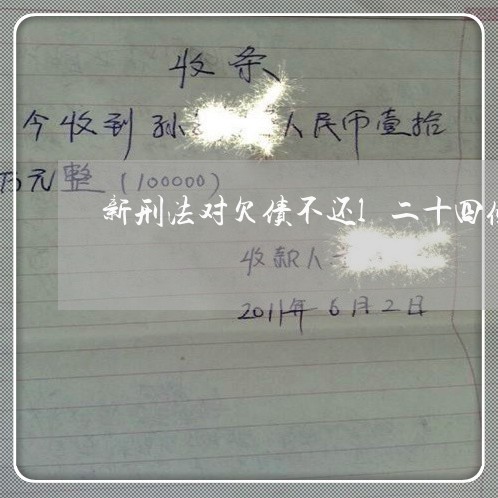 收条
今收到孙 人民币壹拾
万元整(100000)
新刑法对欠债不还1 二十四
收款人
2011年6月2日